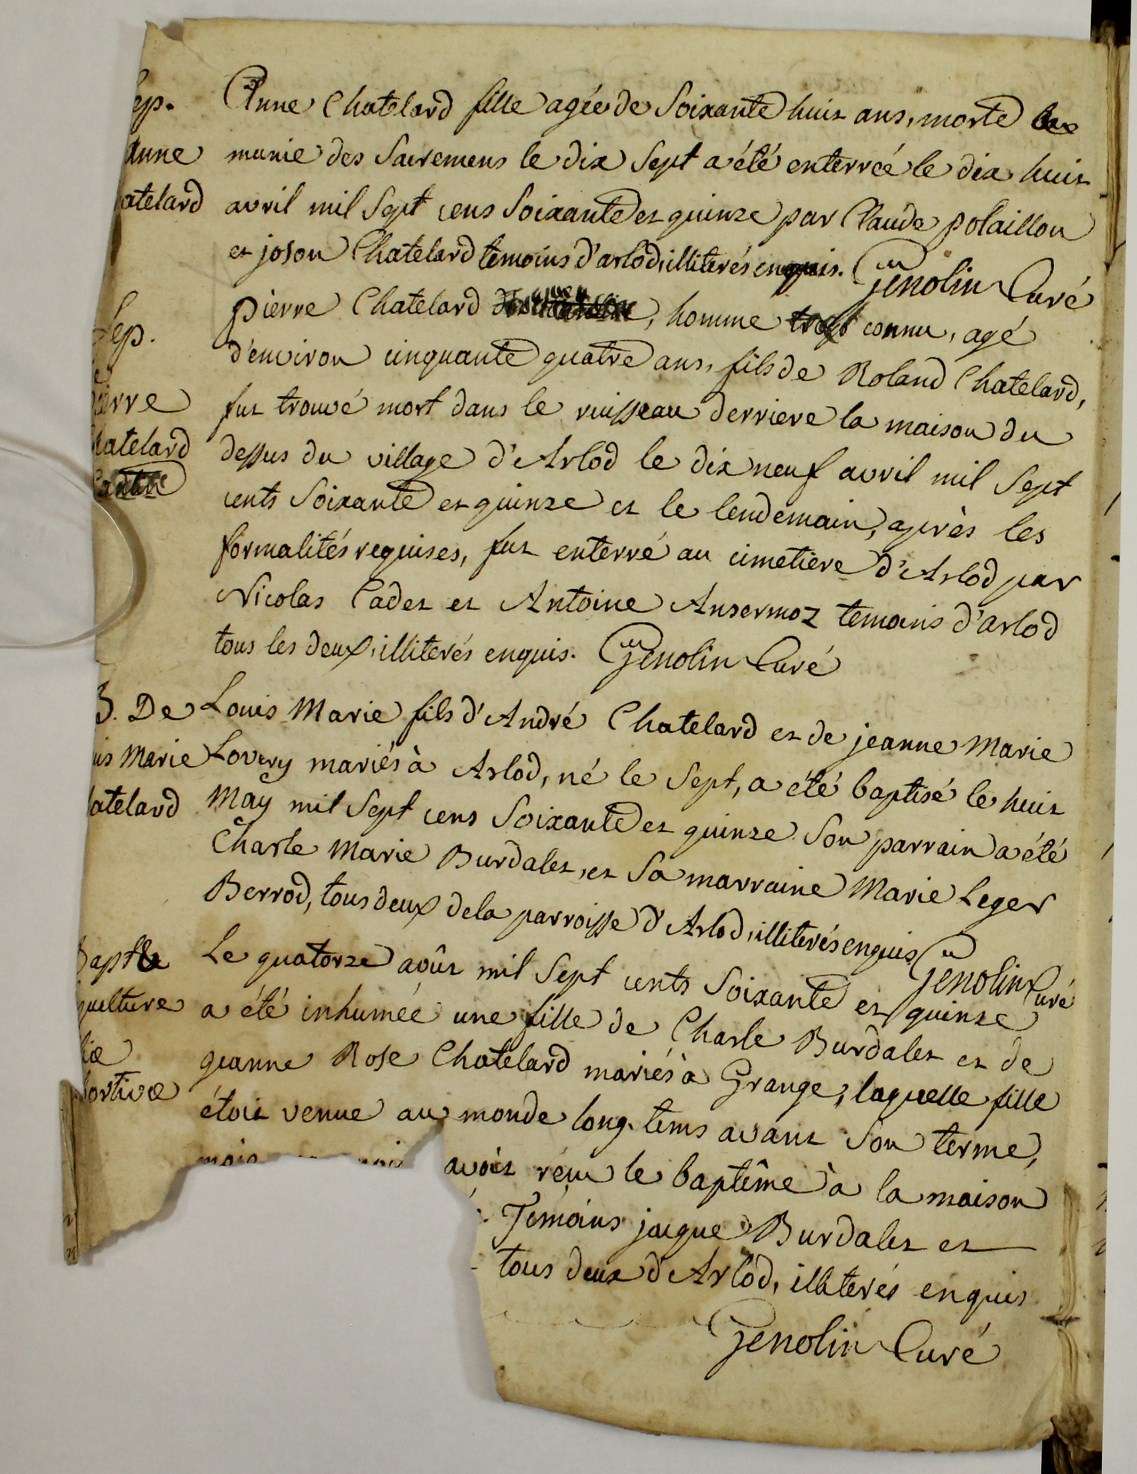 ep.
Anne
atelard
Anne Chatelard fille agée de Soixante huit ans, morte
munie des Sacremens le dix Sept a été enterreé le dix huit
avril mil Sept cens Soixante et quinze par Claude polaillon
et joson Chatelard temoins d'arlod, illiterés enquis. Genolin Curé
Sep.
ierre
hatelard
Pierre Chatelard, homme connu, agé
d'environ cinquante quatre ans, fils de Roland Chatelard,
fut trouvé mort dans le ruisseau derriere la maison du
dessus du village d'Arlod le dix neuf avril mil Sept
cents Soixante et quinze et le lendemain, après les
formalités requises, fut enterré au cimetiere d'Arlod par
Nicolas Cadet et Antoine Ansermoz temoins d'arlod
tous les deux, illiterés enquis. Genolin Curé
B. De
uis Marie
hatelard
Louis Marie fils d'André Chatelard et de jeanne Marie
Lovery mariés à Arlod, né le Sept, a été baptisé le huit
May mil Sept cens Soixante et quinze Son parrain a été
Charle Marie Burdalet, et Sa marraine Marie Leger
Berrod, tous deux de la parroisse d'Arlod, illiterés enquis Genolin Curé
pulture
liæ
bortivæ
Le quatorze août mil Sept cents Soixante et quinze
a été inhumée une fille de Charle Burdalet et de
jeanne Rose Chatelard mariés à Grange, laquelle fille
étoit venue au monde long-tems avant Son terme,
mais avoit réçu le baptême à la maison
Temoins jacque Burdalet et
tous deux d'Arlod, illiterés enquis
Genolin Curé